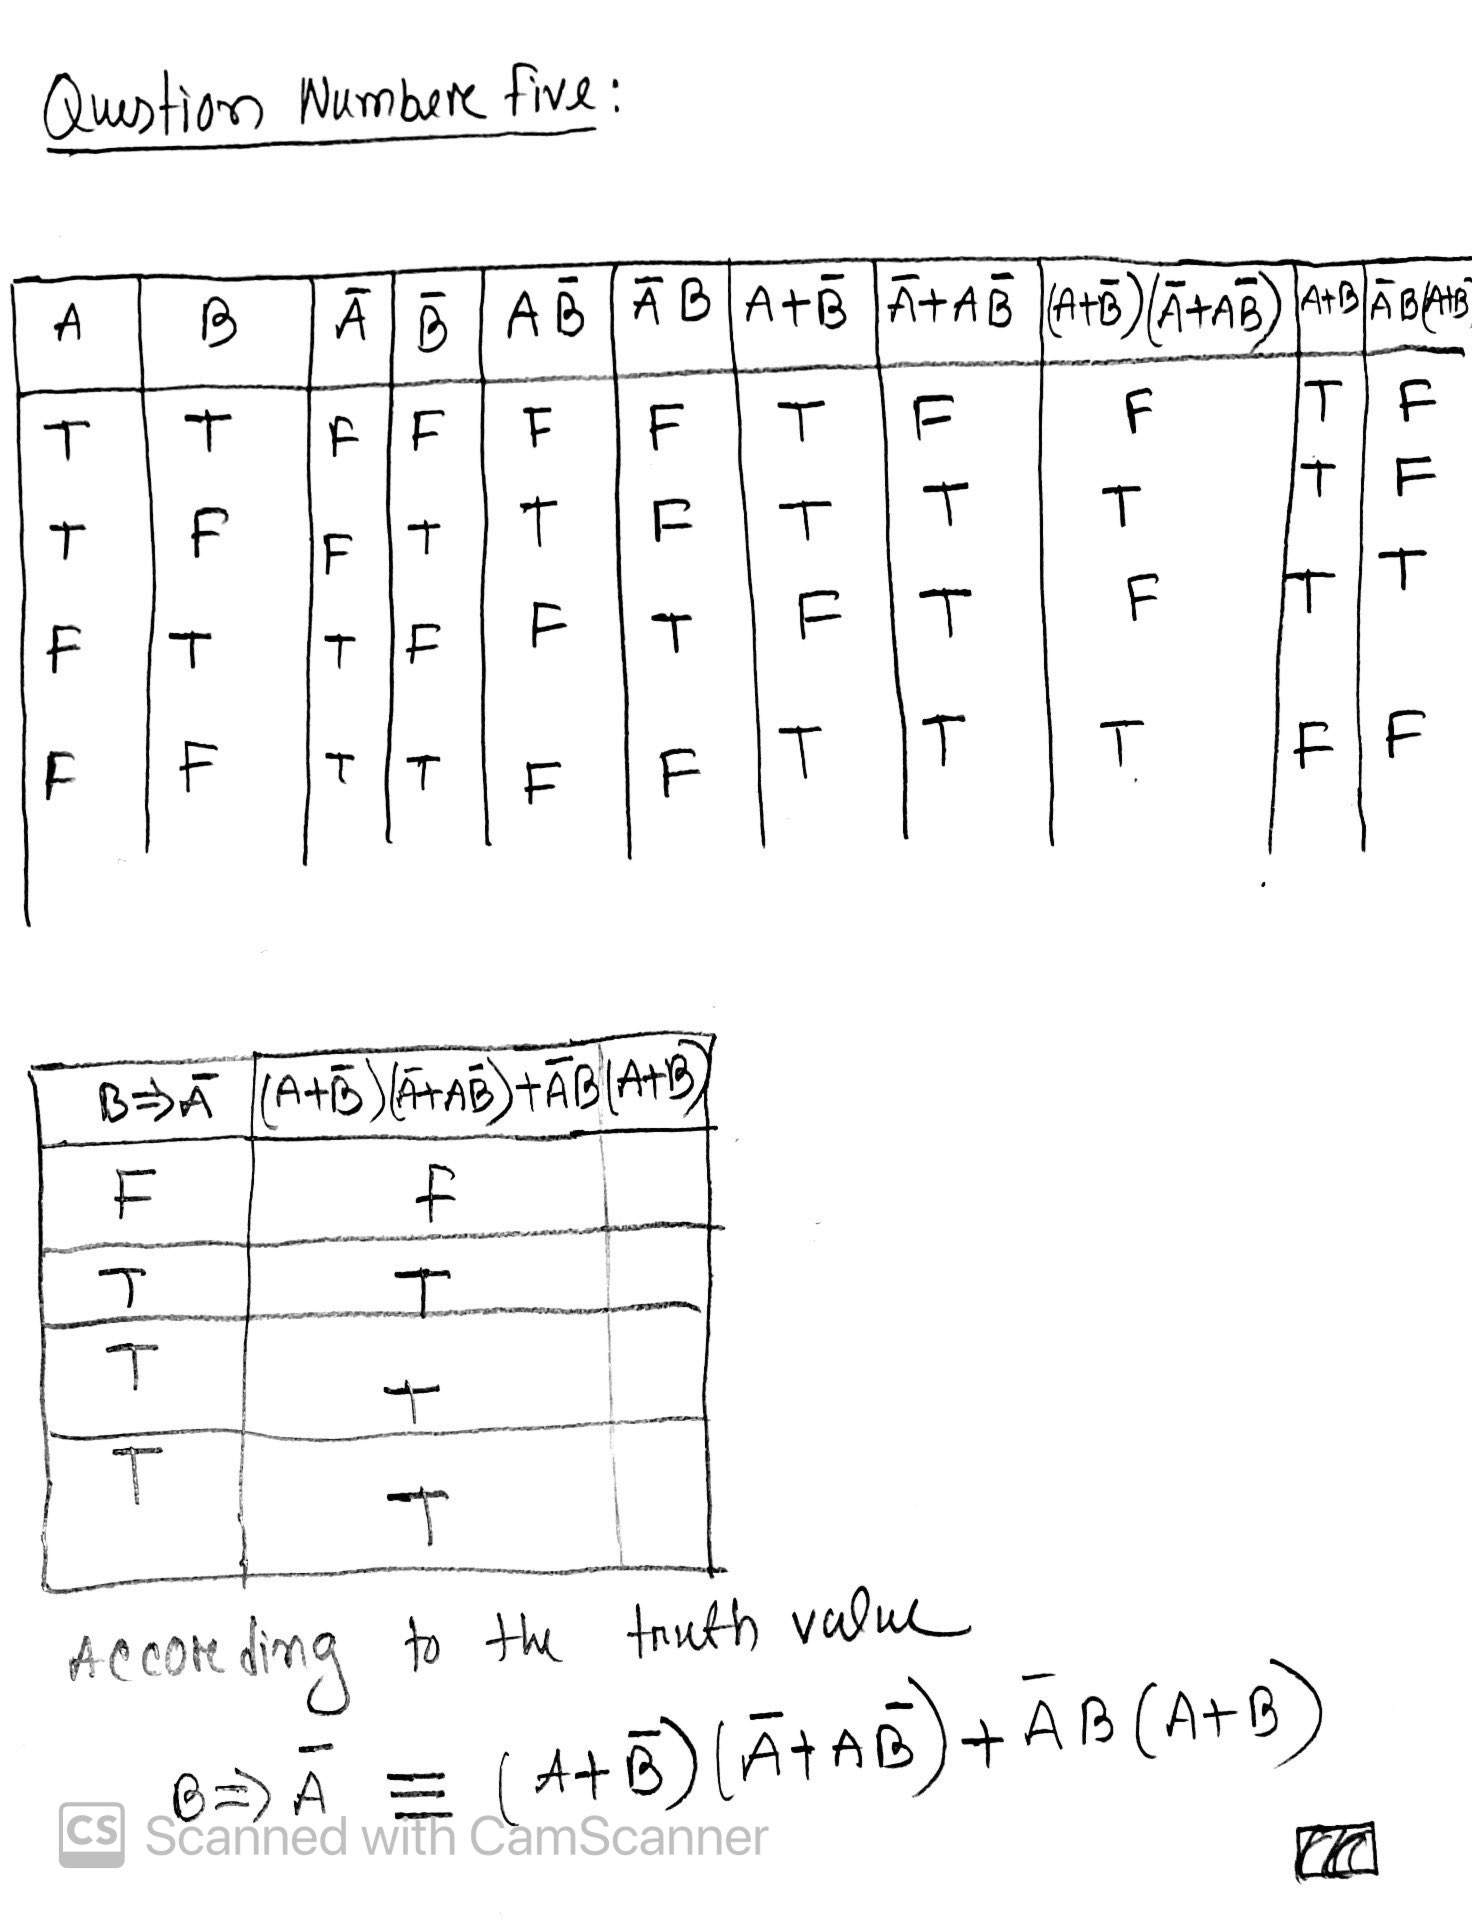 Question Numbere five:
A B Ā B̄ A B̄ Ā B A+B̄ Ā+AB̄ (A+B̄)(Ā+AB̄) A+B ĀB(A+B)
T T F F F F T F F T F
T F F T T F T T T T F
F T T F F T F T F T T
F F T T F F T T T F F
B⇒Ā (A+B̄)(Ā+AB̄)+ĀB(A+B)
F F
T T
T T
T T
Accoreding to the truth value
B⇒Ā ≡ (A+B̄)(Ā+AB̄)+ĀB(A+B)
CS Scanned with CamScanner